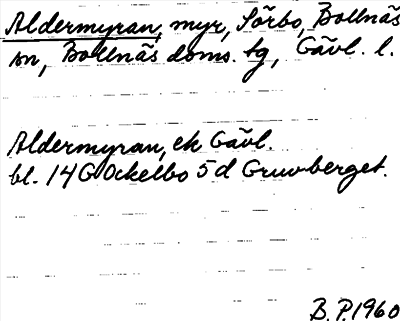 Aldermyran, myr, Sörbo, Bollnäs
sn, Bollnäs doms. tg, Gävl. l.
Aldermyran, ek Gävl.
bl. 14G Ockelbo 5d Gruvberget.
B.P. 1960